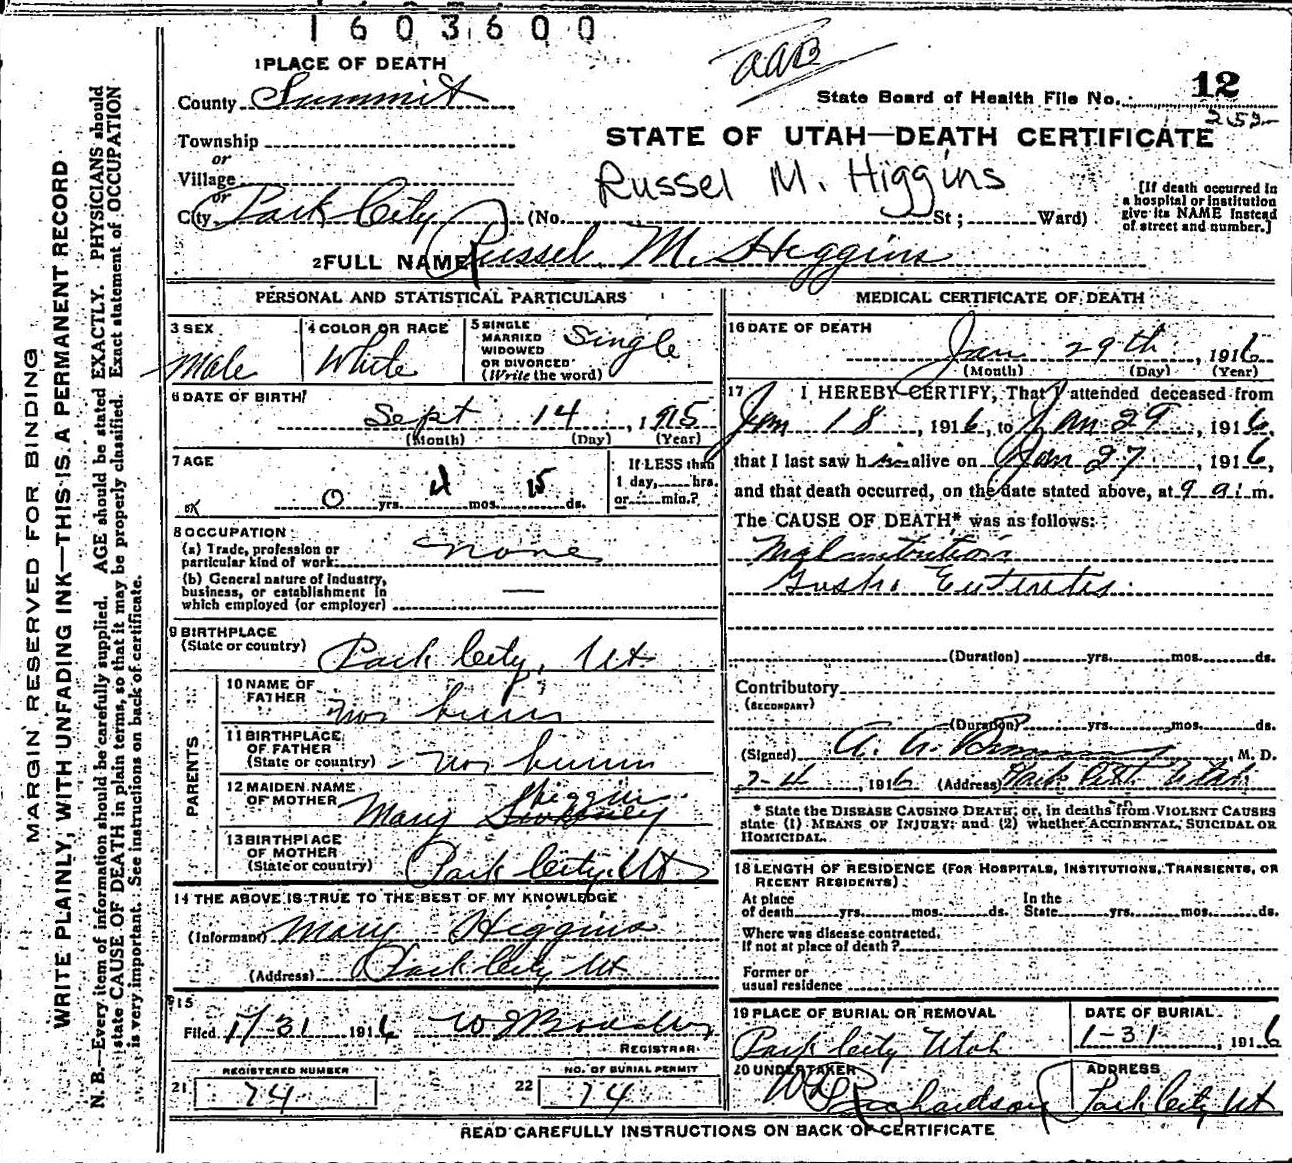 1603600
AAB
1 PLACE OF DEATH
County Summit
State Board of Health File No. 12
252
Township
or
Village
or
City Park City (No. St; Ward)
STATE OF UTAH—DEATH CERTIFICATE
Russel M. Higgins
[If death occurred in
a hospital or institution
give its NAME instead
of street and number.]
2 FULL NAME Russel M. Higgins
PERSONAL AND STATISTICAL PARTICULARS
3 SEX
Male
4 COLOR OR RACE
White
5 SINGLE
MARRIED
WIDOWED
OR DIVORCED
(Write the word)
Single
6 DATE OF BIRTH
Sept 14, 1915
(Month) (Day) (Year)
7 AGE
0 yrs. 4 mos. 15 ds.
If LESS than
1 day, hrs.
or min.?
OK
8 OCCUPATION
(a) Trade, profession or
particular kind of work none
(b) General nature of industry,
business, or establishment in
which employed (or employer) —
9 BIRTHPLACE
(State or country) Park City, Ut
PARENTS
10 NAME OF
FATHER
11 BIRTHPLACE
OF FATHER
(State or country)
12 MAIDEN NAME
OF MOTHER Mary Higgins
13 BIRTHPLACE
OF MOTHER
(State or country) Park City, Ut
14 THE ABOVE IS TRUE TO THE BEST OF MY KNOWLEDGE
(Informant) Mary Higgins
(Address) Park City Ut
15
Filed 1/31 1916
REGISTRAR
REGISTERED NUMBER
21 74
NO. OF BURIAL PERMIT
22 74
MEDICAL CERTIFICATE OF DEATH
16 DATE OF DEATH
Jan 29th, 1916
(Month) (Day) (Year)
17 I HEREBY CERTIFY, That I attended deceased from
Jan 18, 1916, to Jan 29, 1916,
that I last saw him alive on Jan 27, 1916,
and that death occurred, on the date stated above, at 9 a.m.
The CAUSE OF DEATH* was as follows:
Malnutrition
Gastro Enteritis
(Duration) yrs. mos. ds.
Contributory
(SECONDARY)
(Duration) yrs. mos. ds.
(Signed) A. A. M. D.
2-4, 1916 (Address) Park City Utah
* State the DISEASE CAUSING DEATH; or, in deaths from VIOLENT CAUSES
state (1) MEANS OF INJURY; and (2) whether ACCIDENTAL, SUICIDAL OR
HOMICIDAL.
18 LENGTH OF RESIDENCE (FOR HOSPITALS, INSTITUTIONS, TRANSIENTS, OR
RECENT RESIDENTS)
At place
of death yrs. mos. ds.
In the
State yrs. mos. ds.
Where was disease contracted,
If not at place of death?
Former or
usual residence
19 PLACE OF BURIAL OR REMOVAL
Park City Utah
DATE OF BURIAL
1-31, 1916
20 UNDERTAKER
Richardson
ADDRESS
Park City Ut
READ CAREFULLY INSTRUCTIONS ON BACK OF CERTIFICATE
MARGIN RESERVED FOR BINDING
WRITE PLAINLY, WITH UNFADING INK—THIS IS A PERMANENT RECORD
N. B.—Every item of information should be carefully supplied. AGE should be stated EXACTLY. PHYSICIANS should
state CAUSE OF DEATH in plain terms, so that it may be properly classified. Exact statement of OCCUPATION
is very important. See instructions on back of certificate.